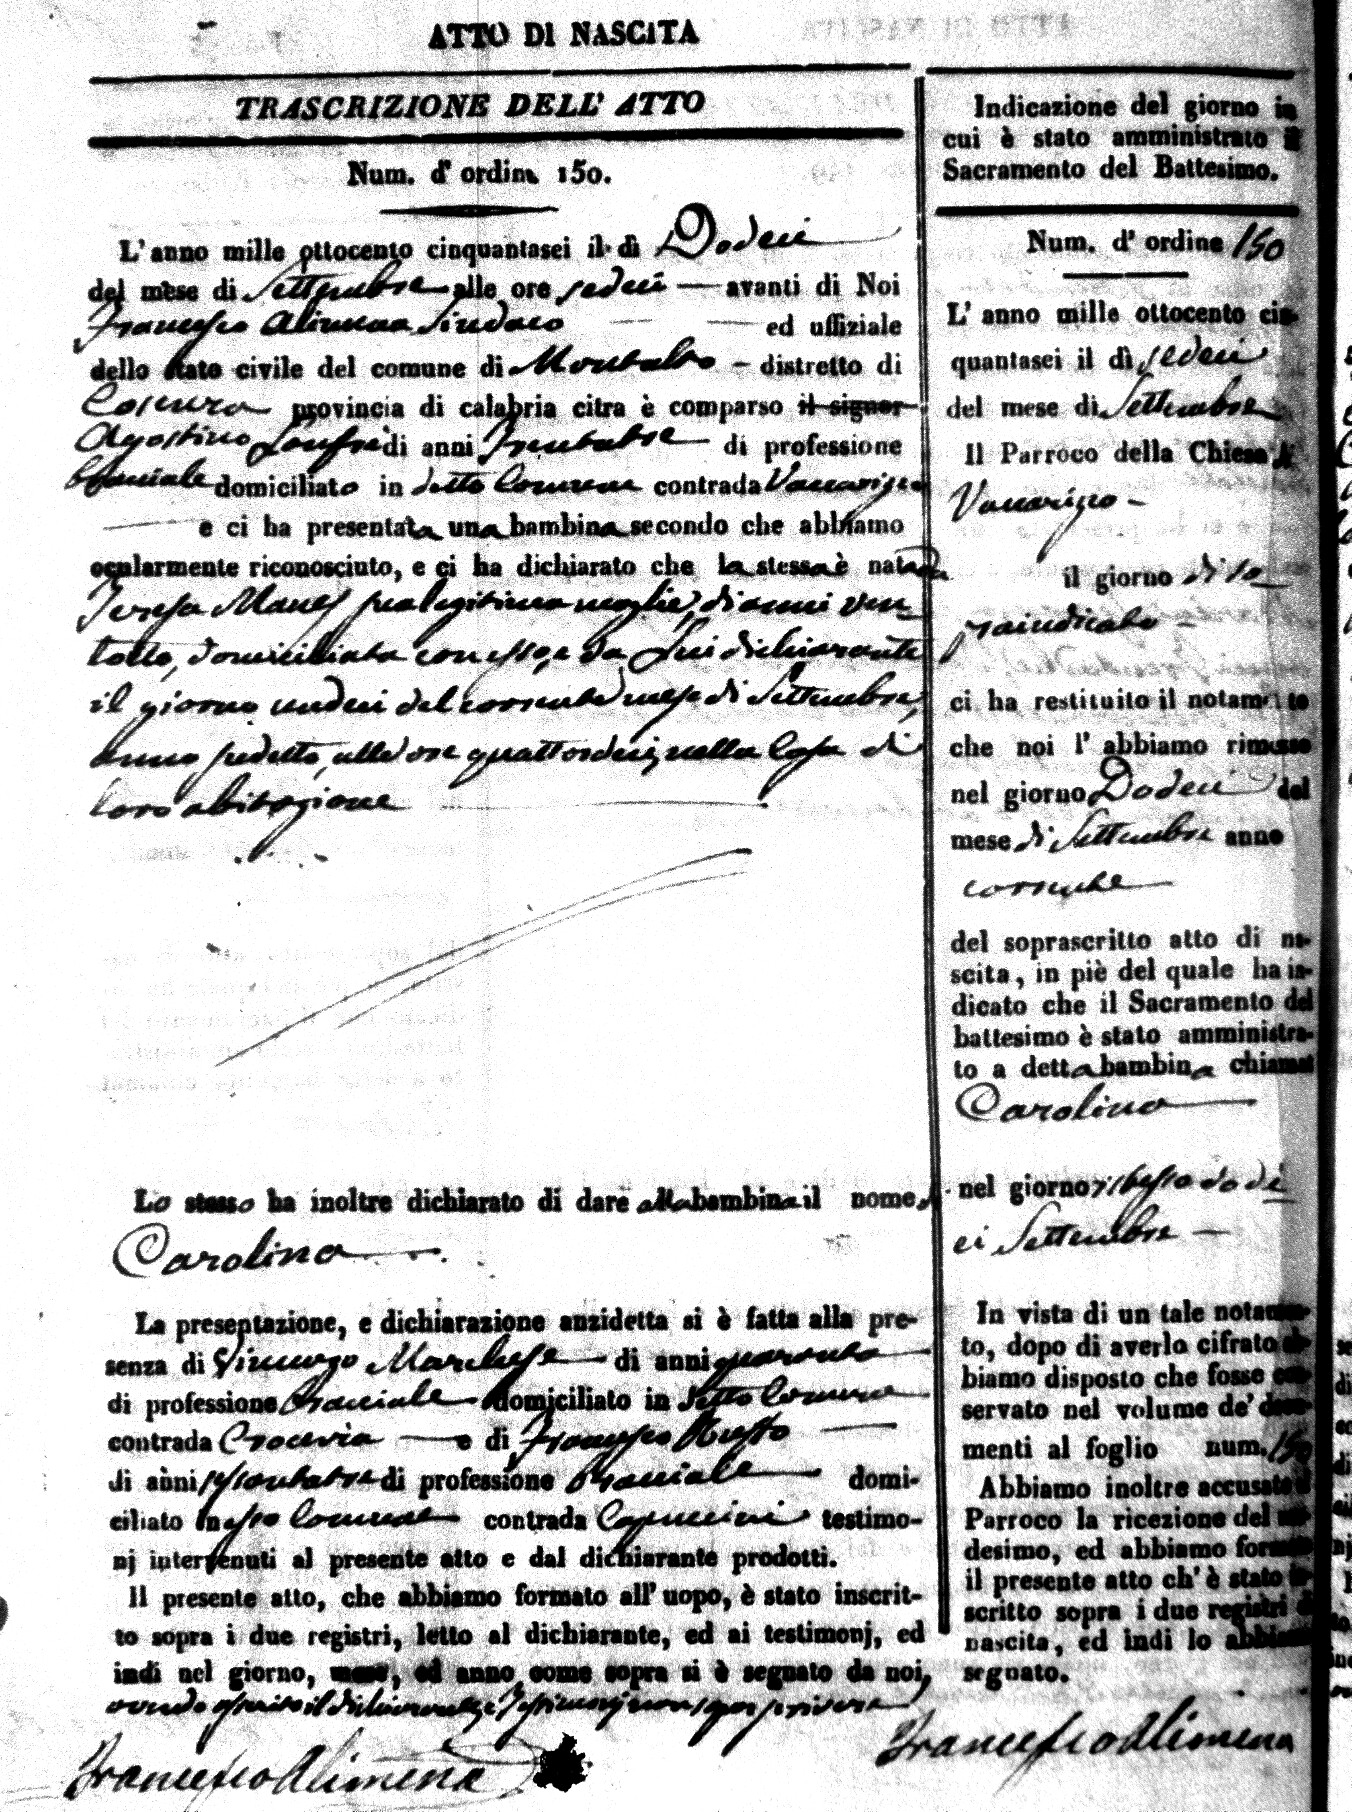 ATTO DI NASCITA
TRASCRIZIONE DELL' ATTO
Num. d' ordine 150.
L' anno mille ottocento cinquantasei il dì Dodeci
del mese di Settembre alle ore sedeci avanti di Noi
Francesco Alimena Sindaco ed uffiziale
dello stato civile del comune di Montalto distretto di
Cosenza provincia di calabria citra è comparso il signor
Agostino di anni Trentatre di professione
bracciale domiciliato in detto Comune contrada Vaccarizzo
e ci ha presentata una bambina secondo che abbiamo
ocularmente riconosciuto, e ci ha dichiarato che la stessa è nata da
Teresa Manes sua legittima moglie, di anni ven-
totto, domiciliata con esso, e da Lui dichiarante
il giorno undeci del corrente mese di Settembre,
anno sudetto, alle ore quattordeci, nella Casa di
loro abitazione
Lo stesso ha inoltre dichiarato di dare alla bambina il nome di
Carolina
La presentazione, e dichiarazione anzidetta si è fatta alla pre-
senza di Vincenzo Marchese di anni quaranta
di professione bracciale domiciliato in detto Comune
contrada Crocevia e di Francesco Russo
di anni sessantatre di professione bracciale domi-
ciliato in esso Comune contrada Capuccini testimo-
nj intervenuti al presente atto e dal dichiarante prodotti.
Il presente atto, che abbiamo formato all' uopo, è stato inscrit-
to sopra i due registri, letto al dichiarante, ed ai testimonj, ed
indi nel giorno, mese, ed anno come sopra si è segnato da noi,
avendo asserito il dichiarante, e Testimonj non saper scrivere
Francesco Alimena
Indicazione del giorno in
cui è stato amministrato il
Sacramento del Battesimo.
Num. d' ordine 150
L' anno mille ottocento cin-
quantasei il dì sedeci
del mese di Settembre
Il Parroco della Chiesa di
Vaccarizzo
il giorno di so-
praindicato
ci ha restituito il notamento
che noi l' abbiamo rimesso
nel giorno Dodeci del
mese di Settembre anno
corrente
del soprascritto atto di na-
scita, in piè del quale ha in-
dicato che il Sacramento del
battesimo è stato amministra-
to a detta bambina chiamat
Carolina
nel giorno stesso dodi
ci Settembre
In vista di un tale notamen-
to, dopo di averlo cifrato ab-
biamo disposto che fosse con-
servato nel volume de' docu-
menti al foglio num. 150
Abbiamo inoltre accusato il
Parroco la ricezione del me-
desimo, ed abbiamo formato
il presente atto ch' è stato in-
scritto sopra i due registri di
nascita, ed indi lo abbiamo
segnato.
Francesco Alimena